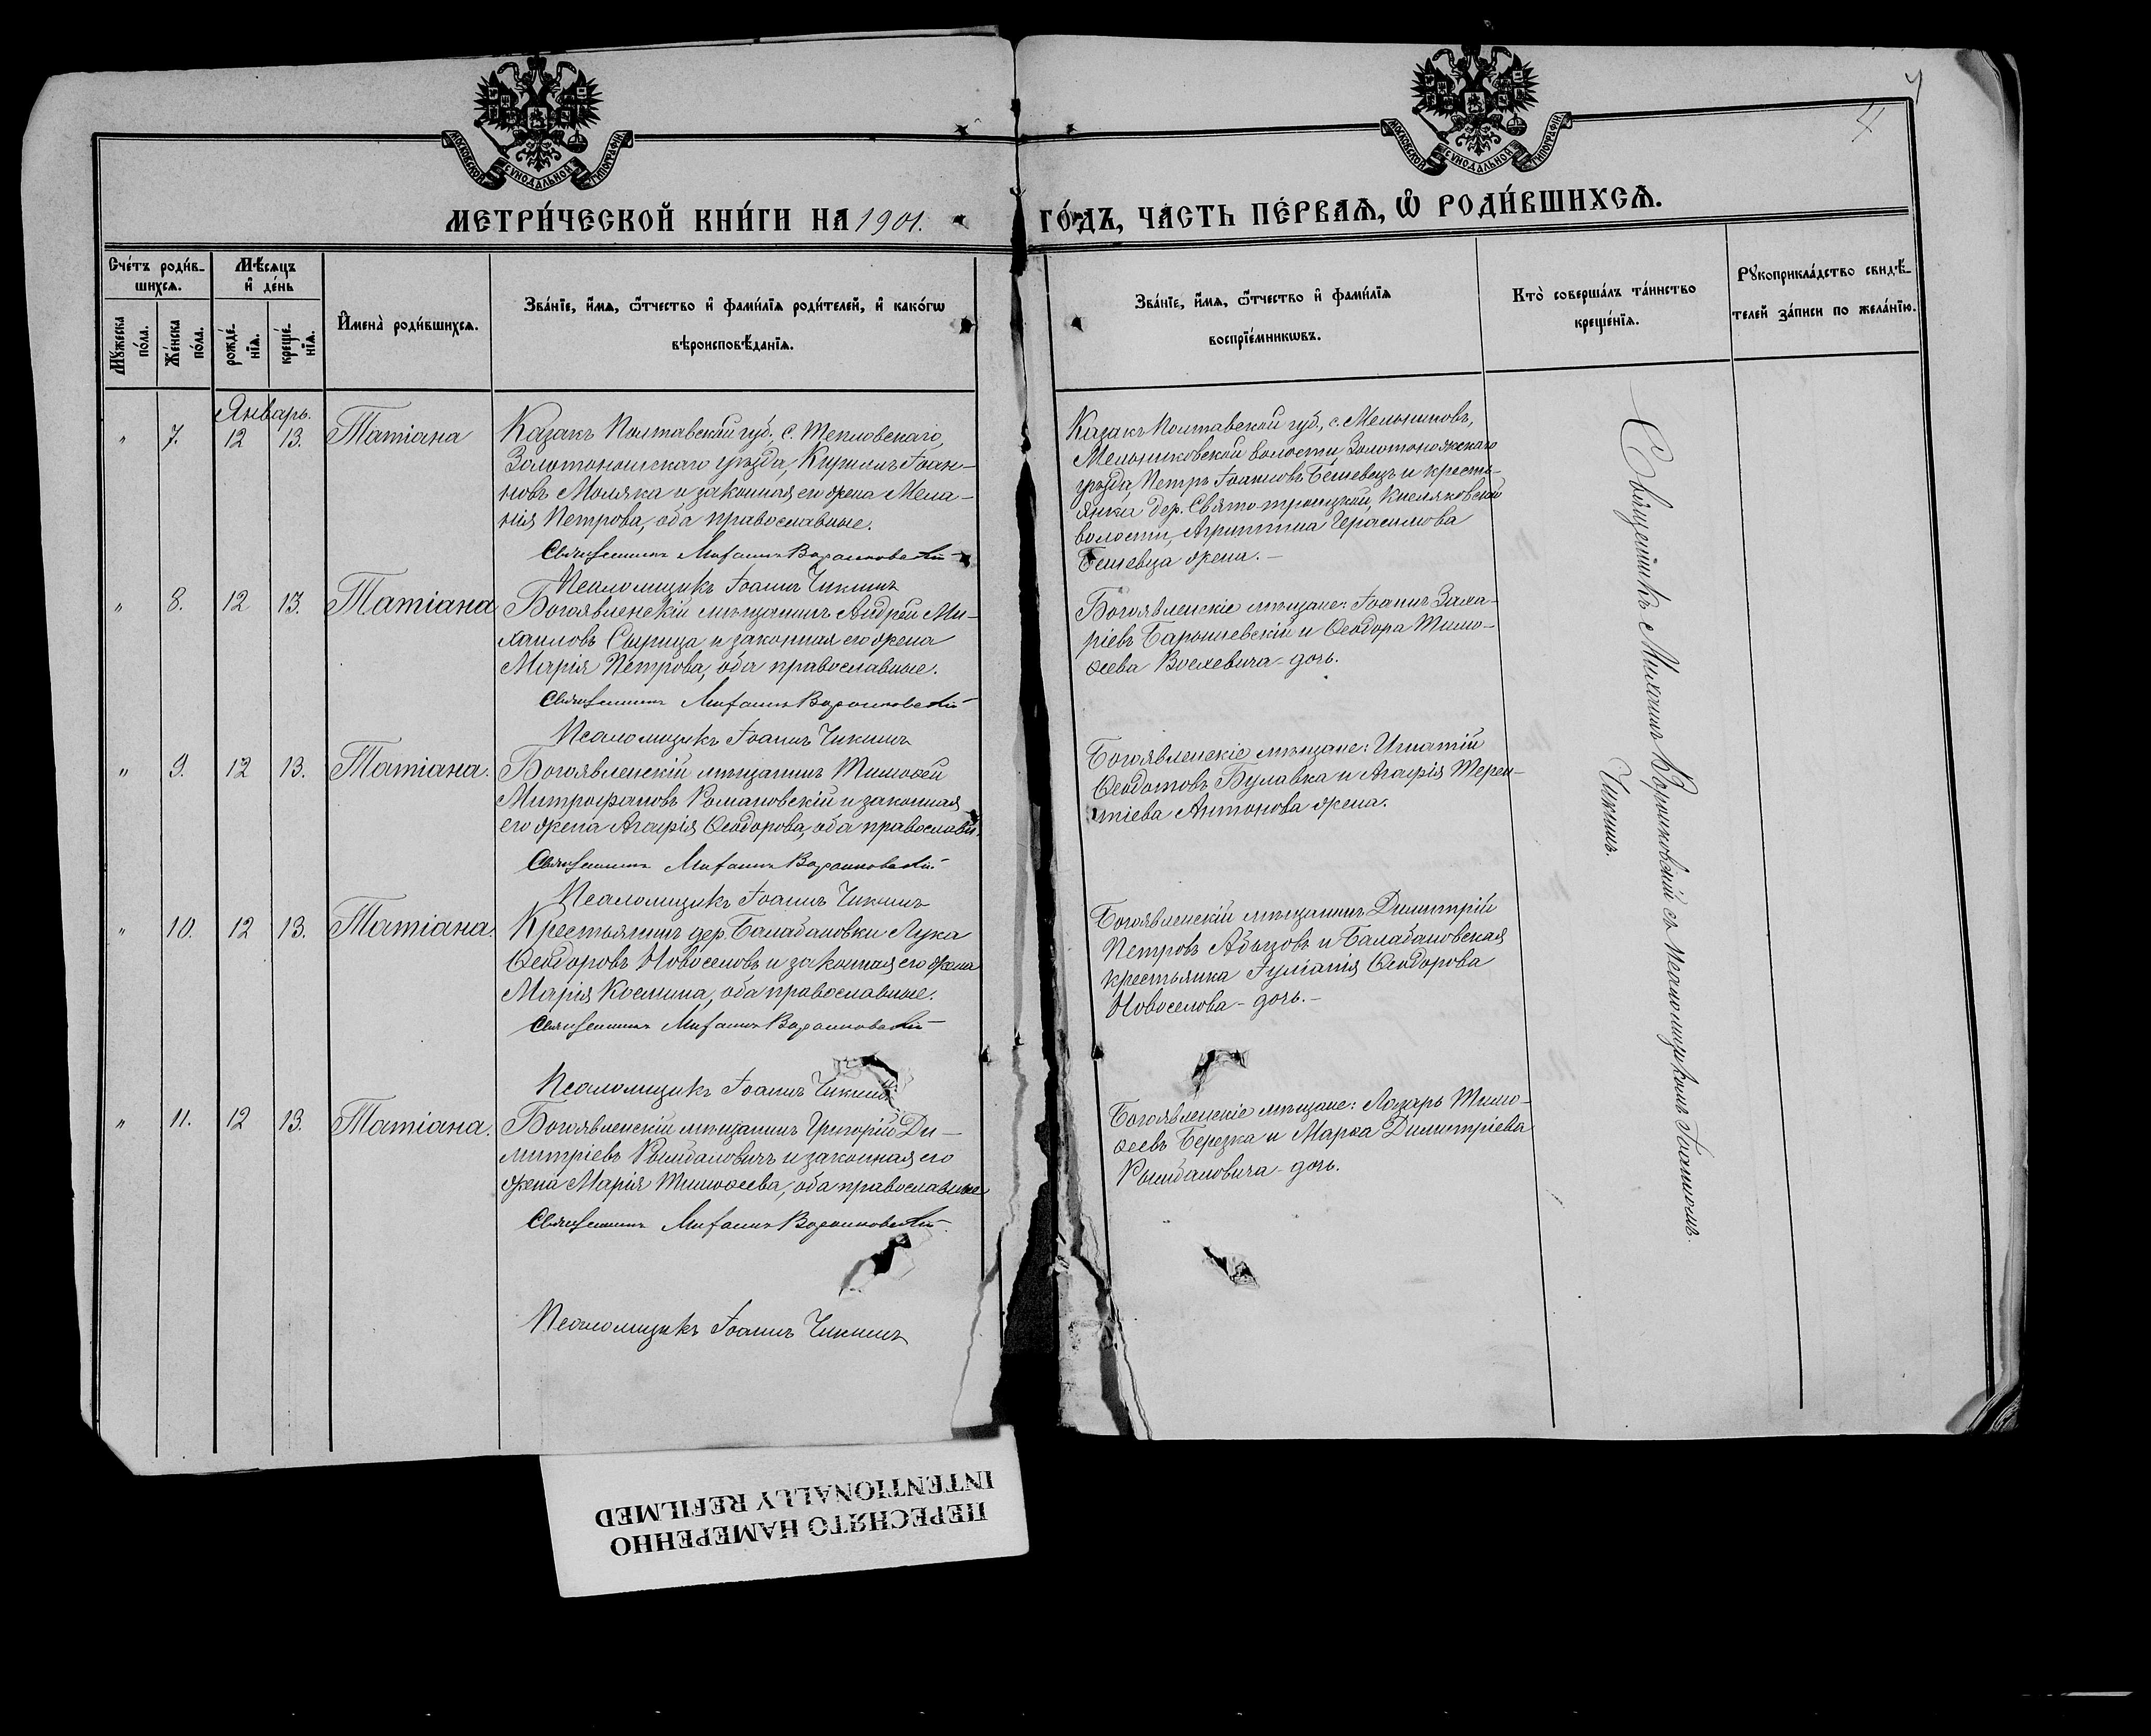 МОСКОВСКОЙ СѴНОДАЛЬНОЙ ТИПОГРАФІИ
МОСКОВСКОЙ СѴНОДАЛЬНОЙ ТИПОГРАФІИ
4
МЕТРИ́ЧЕСКОЙ КНИ́ГИ НА 1901.
ГО́ДЪ, ЧА́СТЬ ПЕ́РВАѦ, Ѽ РОДИ́ВШИХСѦ.
Сче́тъ роди́в-
шихсѧ.
Мѣ́сѧцъ
и҆ де́нь
Мꙋ́жеска
по́ла.
Же́нска
по́ла.
рожде́-
нїѧ.
креще́-
нїѧ.
И҆мена̀ роди́вшихсѧ.
Зва́нїе, и҆́мѧ, ѻ҆́тчество и҆ фами́лїѧ роди́телей, и҆ како́гѡ
вѣроисповѣ́данїѧ.
Зва́нїе, и҆́мѧ, ѻ҆́тчество и҆ фами́лїѧ
воспрїе́мникѡвъ.
Кто̀ соверша́лъ та́инство
креще́нїѧ.
Рꙋкоприкла́дство свидѣ́-
телей за́писи по жела́нїю.
Январь.
" 7. 12 13. Татіана
Казакъ Полтавской губ., с. Тепловскаго,
Золотоношскаго уѣзда, Кириллъ Іоан-
новъ Моляка и законная его жена Мела-
нія Петрова, оба православные.
Священникъ Михаилъ Воронковскій
Псаломщикъ Іоаннъ Чикинъ
Казакъ Полтавской губ., с. Мельниковъ,
Мельниковской волости, Золотоножскаго
уѣзда Петръ Іоанновъ Бешевецъ и кресть-
янка дер. Свято-троицкой, Киселяковской
волости, Агриппина Герасимова
Бешевца жена.-
" 8. 12 13. Татіана
Богоявленскій мѣщанинъ Андрей Ми-
хаиловъ Сырица и законная его жена
Марія Петрова, оба православные.
Священникъ Михаилъ Воронковскій
Псаломщикъ Іоаннъ Чикинъ
Богоявленскіе мѣщане: Іоаннъ Заха-
ріевъ Барышевскій и Ѳеодора Тимо-
ѳеева Восхевича-дочь.
" 9. 12 13. Татіана.
Богоявленскій мѣщанинъ Тимоѳей
Митрофановъ Романовскій и законная
его жена Агафія Ѳеодорова, оба православн.
Священникъ Михаилъ Воронковскій
Псаломщикъ Іоаннъ Чикинъ
Богоявленскіе мѣщане: Игнатій
Ѳеодотовъ Булавка и Агафія Терен-
тіева Антонова жена.
" 10. 12 13. Татіана.
Крестьянинъ дер. Балабановки Лука
Ѳеодоровъ Новоселовъ и законная его жена
Марія Космина, оба православные.
Священникъ Михаилъ Воронковскій
Псаломщикъ Іоаннъ Чикинъ
Богоявленскій мѣщанинъ Димитрій
Петровъ Абызовъ и Балабановская
крестьянка Іуліанія Ѳеодорова
Новоселова-дочь.-
" 11. 12 13. Татіана.
Богоявленскій мѣщанинъ Григорій Ди-
митріевъ Рымбаловичъ и законная его
жена Марія Тимоѳеева, оба православные
Священникъ Михаилъ Воронковскій
Псаломщикъ Іоаннъ Чикинъ
Богоявленскіе мѣщане: Лазарь Тимо-
ѳеевъ Березка и Марѳа Димитріева
Рымбаловича-дочь.
Священникъ Михаилъ Воронковскій съ псаломщикомъ Іоанномъ
Чикинъ.
ПЕРЕСНЯТО НАМЕРЕННО
INTENTIONALLY REFILMED